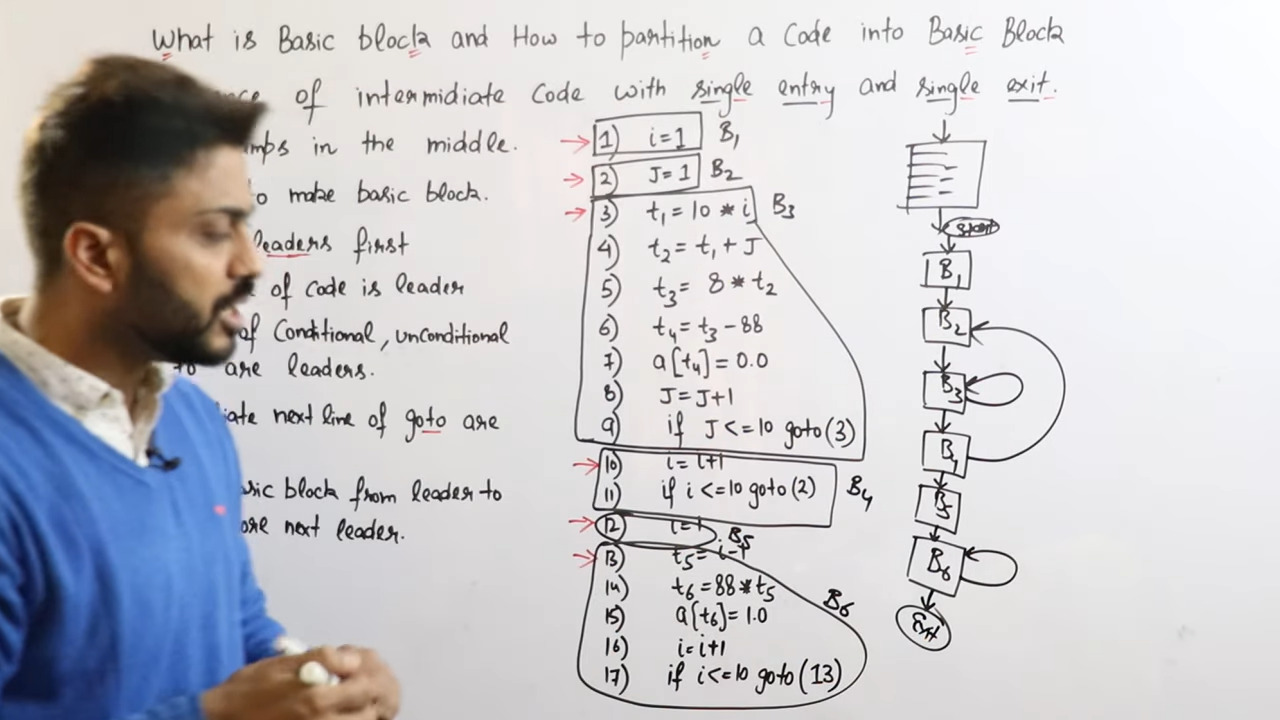 What is Basic block and How to partition a Code into Basic Block
of intermidiate Code with single entry and single exit.
in the middle.
to make basic block.
leaders first
of code is leader
of Conditional, unconditional
are leaders.
next line of goto are
block from leader to
next leader.
1) i=1 B1
2) J=1 B2
3) t1=10 * i B3
4) t2=t1+J
5) t3= 8*t2
6) t4=t3-88
7) a[t4]=0.0
8) J=J+1
9) if J<=10 goto(3)
10) i=i+1
11) if i<=10 goto(2) B4
12) i=1 B5
13) t5=i-1
14) t6=88*t5
15) a[t6]=1.0 B6
16) i=i+1
17) if i<=10 goto(13)
start
B1
B2
B3
B4
B5
B6
Exit